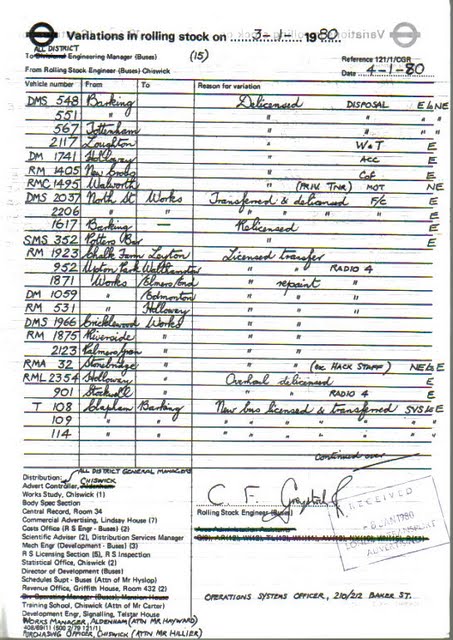 Variations in rolling stock on 3-1-1980
ALL DISTRICT
To Divisional Engineering Manager (Buses) (15)
Reference 121/1/CGR
From Rolling Stock Engineer (Buses) Chiswick
Date 4-1-80
Vehicle number From To Reason for variation
DMS 548 Barking Delicensed DISPOSAL E & NE
551 " " " " "
567 Tottenham " " E
2117 Loughton " W&T E
DM 1741 Holloway " ACC E
RM 1405 New Cross " CofF E
RMC 1495 Walworth " (PRIV. TNR) MOT NE
DMS 2037 North St Works Transferred & delicensed F/C E
2206 " " " " E
1617 Barking — Relicensed E
SMS 352 Potters Bar " E
RM 1923 Chalk Farm Leyton Licensed transfer E
952 Upton Park Walthamstow " " RADIO 4 E
1871 Works Elmers End " " repaint " E
DM 1059 " Edmonton " " " E
RM 531 " Holloway " " " E
DMS 1966 Cricklewood Works " " E
RM 1875 Riverside " " " E
2123 Palmers Green " " " E
RMA 32 Stonebridge " " " (ex HACK STAFF) NE & E
RML 2354 Holloway " Overhaul delicensed E
901 Stockwell " " " RADIO 4 E
T 108 Clapham Barking New bus licensed & transferred SVS & E
109 " " " " " " " "
114 " " " " " " " "
Continued over
Distribution: ALL DISTRICT GENERAL MANAGERS
CHISWICK
Advert Controller, Aldenham
Works Study, Chiswick (1)
Body Spec Section
Central Record, Room 34
Commercial Advertising, Lindsay House (7)
Costs Office (R S Engr - Buses) (3)
Scientific Adviser (2), Distribution Services Manager
Mech Engr (Development - Buses) (3)
R S Licensing Section (5), R S Inspection
Statistical Office, Chiswick (2)
Director of Development (Buses)
Schedules Supt - Buses (Attn of Mr Hyslop)
Revenue Office, Griffith House, Room 432 (2)
Div Operating Manager (Buses), Mansion House
Training School, Chiswick (Attn of Mr Carter)
Development Engr, Signalling, Telstar House
WORKS MANAGER, ALDENHAM (ATTN MR HAYWARD)
PURCHASING OFFICER, CHISWICK (ATTN MR HILLIER)
Rolling Stock Engineer (Buses)
RECEIVED
JAN 1980
LONDON TRANSPORT
ADVERTISING
OPERATIONS SYSTEMS OFFICER, 210/212 BAKER ST.